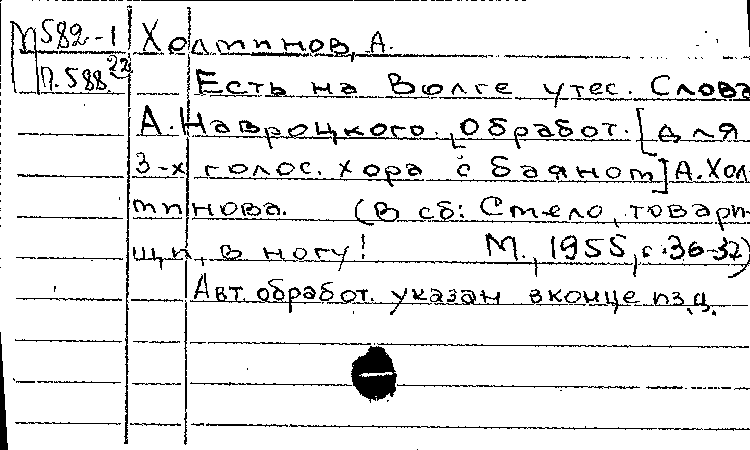 М 582-1 Холминов, А.
П. 588 22 Есть на Волге утес. Слова
А. Навроцкого. Обработ. [для
3-х голос. хора с баяном] А. Хол-
минова. (В сб: Смело, товари-
щи, в ногу! М., 1955, с. 30-32)
Авт. обработ. указан в конце изд.